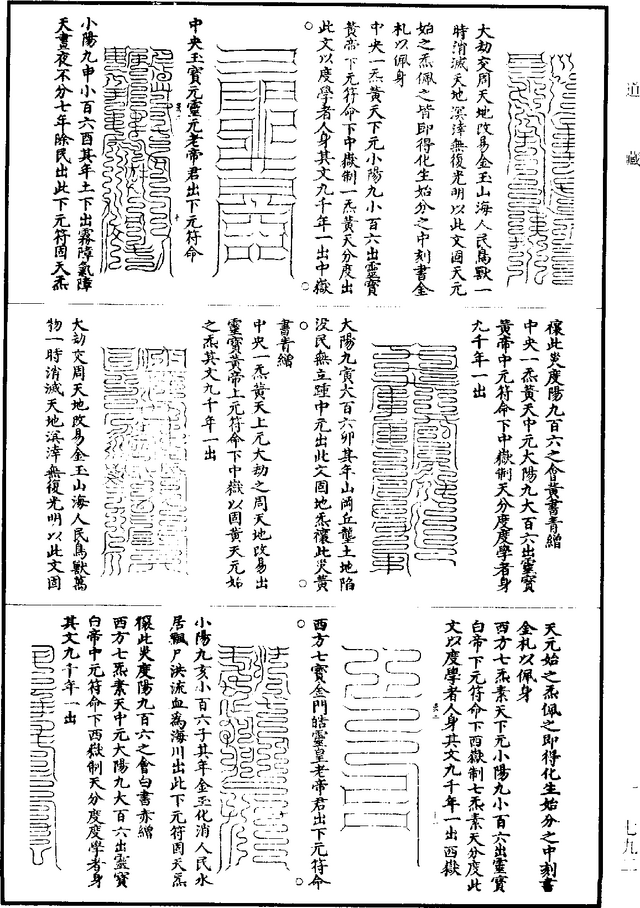 道藏
大劫交周天地改易金玉山海人民鳥獸一
時消滅天地溟涬無復光明以此文固天元
始之炁佩之皆即得化生始分之中刻書金
札以佩身
中央一炁黃天下元小陽九小百六出靈寶
黃帝下元符命下中嶽制一炁黃天分度出
此文以度學者人身其文九千年一出中嶽
中央玉寶元靈元老帝君出下元符命
小陽九申小百六酉其年土下出霧障氣障
天晝夜不分七年除民出此下元符固天炁
禳此災度陽九百六之會黃書青繒
中央一炁黃天中元大陽九大百六出靈寶
黃帝中元符命下中嶽制天分度度學者身
九千年一出
大陽九寅大百六卯其年山岡丘壟土地陷
沒民無立踵中元出此文固地炁禳此災黃
書青繒
中央一炁黃天上元大劫之周天地改易出
靈寶黃帝上元符命下中嶽以固黃天元始
之炁其文九千年一出
大劫交周天地改易金玉山海人民鳥獸萬
物一時消滅天地溟涬無復光明以此文固
天元始之炁佩之即得化生始分之中刻書
金札以佩身
西方七炁素天下元小陽九小百六出靈寶
白帝下元符命下西嶽制七炁素天分度此
文以度學者人身其文九千年一出西嶽
西方七寶金門皓靈皇老帝君出下元符命
小陽九亥小百六子其年金玉化消人民水
居飄尸洪流血為海川出此下元符固天炁
禳此災度陽九百六之會白書赤繒
西方七炁素天中元大陽九大百六出靈寶
白帝中元符命下西嶽制天分度度學者身
其文九千年一出
一七九二